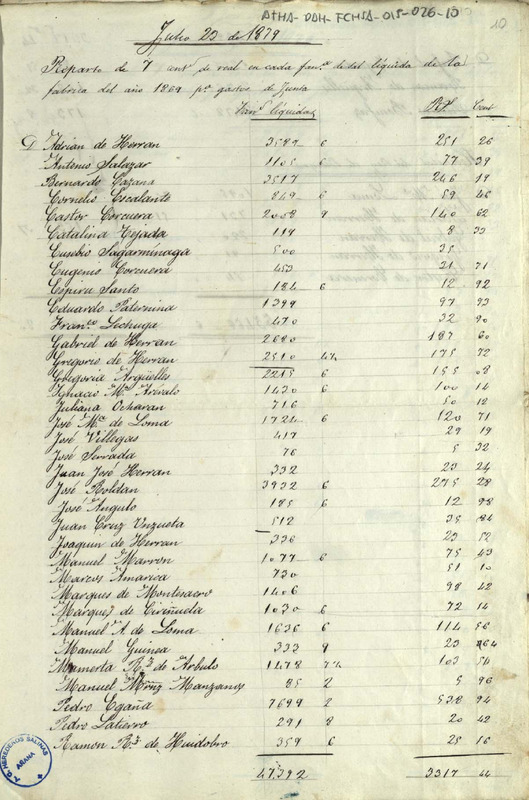 ATHA-DAH-FCHSA-015-026-10
10
Julio 23 de 1879
Reparto de 7 cent.s de real en cada fan.a de sal líquida de la
fabrica del año 1869 p.a gastos de Junta
Fan.s líquidas R.s Cent.
D. Adrian de Herran 3589 6 251 26
Antonio Salazar 1105 6 77 39
Bernardo Cazana 3517 246 19
Cornelio Escalante 849 6 59 46
Castor Corcuera 2008 9 140 62
Catalina Tejada 119 8 33
Eusebio Sagarminaga 500 35
Eugenio Corcuera 453 31 71
Espiru Santo 184 6 12 92
Eduardo Paternina 1399 97 93
Fran.co Lechuga 470 32 90
Gabriel de Herran 2680 187 60
Gregorio de Herran 2510 4½ 175 72
Gregoria Argüelles 2215 6 155 08
Ignacio M.a Arévalo 1430 6 100 14
Juliana Ocharan 716 50 12
José M.a de Loma 1724 6 120 71
José Villegas 417 29 19
José Serrada 76 5 32
Juan José Herran 332 23 24
José Roldan 3932 6 275 28
José Angulo 185 6 12 98
Juan Cruz Unzueta 512 35 84
Joaquin de Herran 336 23 52
Manuel Marron 1077 6 75 43
Marcos Amarica 730 51 10
Marques de Montesacro 1406 98 42
Marques de Cirañuela 1030 6 72 14
Manuel A. de Loma 1636 6 114 56
Manuel Guinea 333 9 23 64
Mamerta R.z de Arbulo 1478 7½ 103 54
Manuel Mrnz Manzanos 85 2 5 96
Pedro Egaña 7699 2 538 94
Pedro Latierro 291 8 20 42
Ramon R.z de Huidobro 359 6 25 16
47392 3317 44
HEREDEROS SALINAS
AÑANA